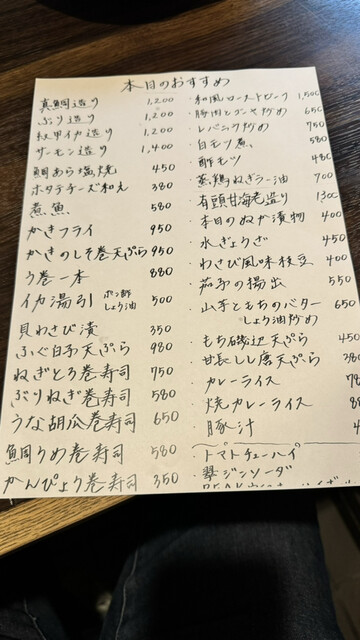 本日のおすすめ
真鯛造り 1,200
ぶり造り 1,200
紋甲イカ造り 1,200
サーモン造り 1,400
鯛あら塩焼 450
ホタテチーズ和え 380
煮魚 580
かきフライ 950
かきのしそ巻天ぷら 950
う巻一本 880
イカ湯引 ポン酢 しょう油 500
貝わさび漬 350
ふぐ白子天ぷら 980
ねぎとろ巻寿司 750
ぶりねぎ巻寿司 580
うな胡瓜巻寿司 650
鯛うめ巻寿司 580
かんぴょう巻寿司 350
・和風ローストビーフ 1,500
・豚肉とグンヤ炒め 650
・レバニラ炒め 750
・白モツ煮 580
・酢モツ 480
・蒸鶏ねぎラー油 700
・有頭甘海老造り 1300
・本日のぬか漬物 400
・水ぎょうざ 450
・わさび風味枝豆 400
・茄子の揚出 550
・山芋ともちのバター 650
しょう油炒め
・もち磯辺天ぷら 450
・甘長しし唐天ぷら 380
・カレーライス
・焼カレーライス
・豚汁
・トマトチューハイ
・翠ジンソーダ